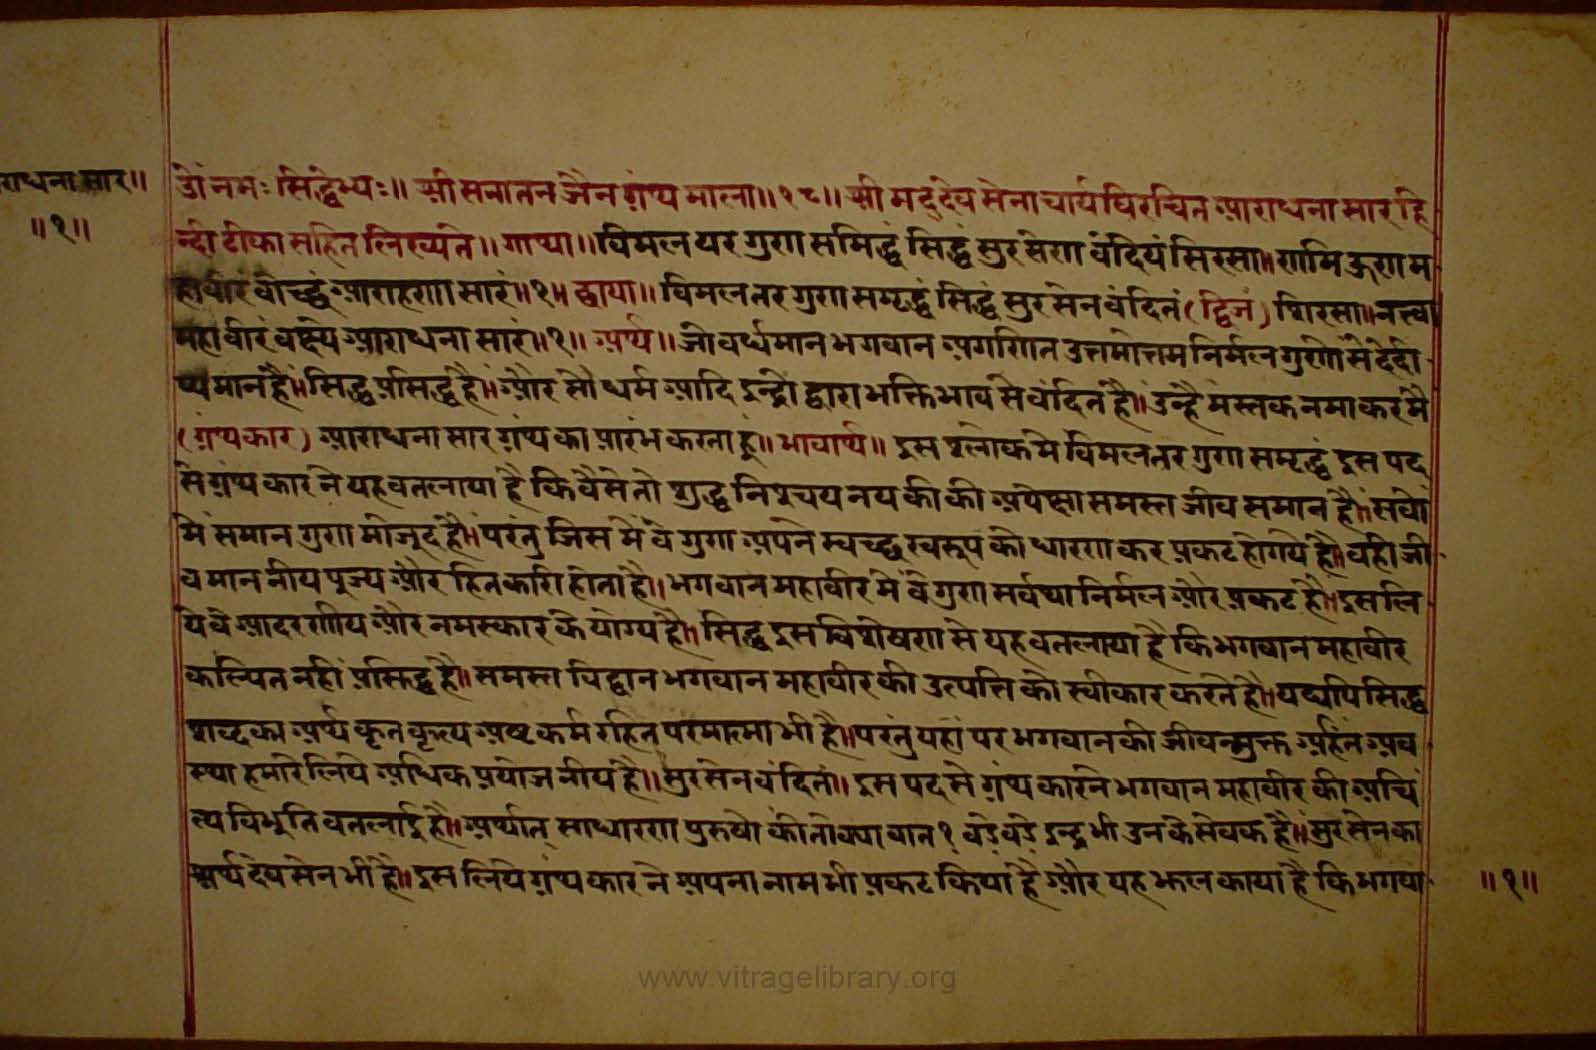 राधना सार॥
॥१॥
ओं नमः सिद्धेभ्यः॥ श्री सनातन जैन ग्रंथ माला॥१८॥ श्री मद्देव सेनाचार्य विरचित आराधना सार हि
न्दी टीका सहित लिख्यते॥ गाथा॥ विमल यर गुण समिद्धं सिद्धं सुर सेण वंदियं सिरसा॥ णमि ऊण म
हावीरं वोच्छं आराहणा सारं॥१॥ छाया॥ विमल तर गुण समृद्धं सिद्धं सुर सेन वंदितं (द्विजं) शिरसा॥ नत्वा
महावीरं वक्ष्ये आराधना सारं॥१॥ अर्थ॥ जो वर्धमान भगवान अगणित उत्तमोत्तम निर्मल गुणों से देदी
प्यमान है॥ सिद्ध प्रसिद्ध है॥ और सौ धर्म आदि इन्द्रों द्वारा भक्ति भाव से वंदित है॥ उन्है मस्तक नमा कर मै
(ग्रंथकार) आराधना सार ग्रंथ का प्रारंभ करता हूं॥ भावार्थ॥ इस श्लोक मे विमल तर गुण समृद्धं इस पद
से ग्रंथ कार ने यह वतलाया है कि वैसे तो शुद्ध निश्चय नय की की अपेक्षा समस्त जीव समान है॥ सवों
मे समान गुण मोजूद है॥ परंतु जिस मे वे गुण अपने स्वच्छ स्वरूप को धारण कर प्रकट हो गये है॥ वही जी
व माननीय पूज्य और हितकारी होता है॥ भगवान महावीर मे वे गुण सर्वथा निर्मल और प्रकट है॥ इस लि
ये वे आदरणीय और नमस्कार के योग्य है॥ सिद्ध इस विशेषण से यह वतलाया है कि भगवान महावीर
कल्पित नही प्रसिद्ध है॥ समस्त विद्वान भगवान महावीर की उत्पत्ति को स्वीकार करते है॥ यद्यपि सिद्ध
शब्द का अर्थ कृत कृत्य अष्ट कर्म रहित परमात्मा भी है॥ परंतु यहां पर भगवान की जीवन्मुक्त अर्हंत अव
स्था हमारे लिये अधिक प्रयोजनीय है॥ सुर सेन वंदितं॥ इस पद से ग्रंथ कार ने भगवान महावीर की अचिं
त्य विभूति वतलाई है॥ अर्थात् साधारण पुरुषों की तो क्या वात? वडे वडे इन्द्र भी उनके सेवक है॥ सुर सेन का
अर्थ देव सेन भी है॥ इस लिये ग्रंथ कार ने अपना नाम भी प्रकट किया है और यह झल काया है कि भगवा
॥१॥
www.vitragelibrary.org